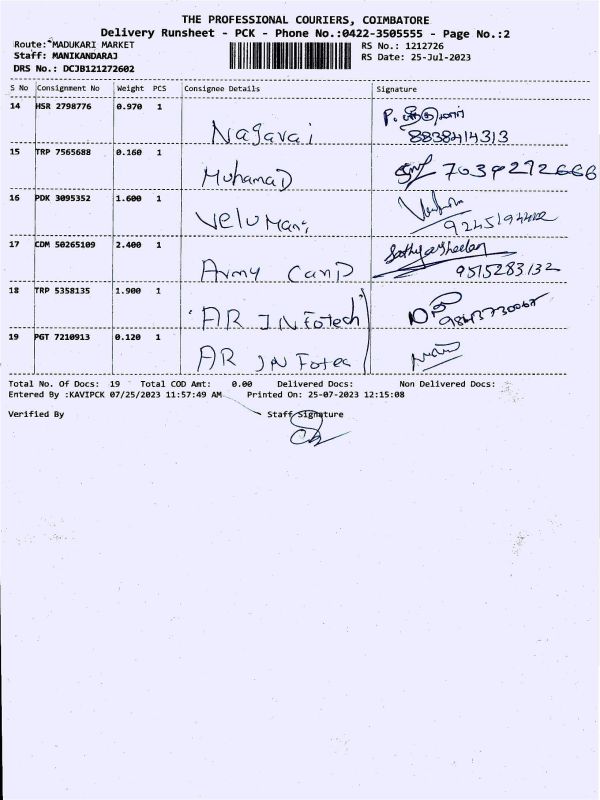 THE PROFESSIONAL COURIERS, COIMBATORE
Delivery Runsheet - PCK - Phone No.:0422-3505555 - Page No.:2
Route: MADUKARI MARKET RS No.: 1212726
Staff: MANIKANDARAJ RS Date: 25-Jul-2023
DRS No.: DCJB121272602
S No Consignment No Weight PCS Consignee Details Signature
14 HSR 2798776 0.970 1
Nagavai 8838414313
15 TRP 7565688 0.160 1
MuhamaD
16 PDK 3095352 1.600 1
Velu Mani
17 CDM 50265109 2.400 1 Sathiyasheelan
Army CamP 9515283132
18 TRP 5358135 1.900 1
AR INFotech
19 PGT 7210913 0.120 1
AR INFotec
Total No. Of Docs: 19 Total COD Amt: 0.00 Delivered Docs: Non Delivered Docs:
Entered By :KAVIPCK 07/25/2023 11:57:49 AM Printed On: 25-07-2023 12:15:08
Verified By Staff Signature